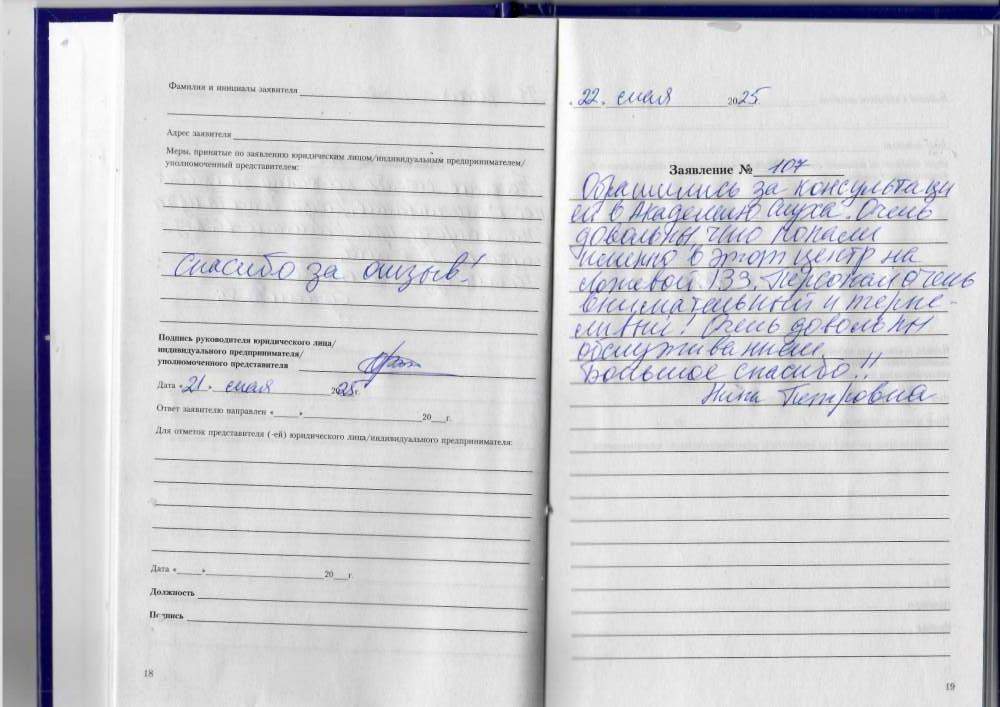 Фамилия и инициалы заявителя
Адрес заявителя
Меры, принятые по заявлению юридическим лицом/индивидуальным предпринимателем/
уполномоченный представителем:
Спасибо за отзыв!
Подпись руководителя юридического лица/
индивидуального предпринимателя/
уполномоченного представителя
Дата «21» мая 2025г.
Ответ заявителю направлен «____»____20__г.
Для отметок представителя (-ей) юридического лица/индивидуального предпринимателя:
Дата «____»____20__г.
Должность
Подпись
18
22. мая 2025
Заявление № 107
Обратились за консультаци
ей в Академию слуха. Очень
довольны что попали
именно в этот центр на
253, Персонал очень
внимательный и терпе-
ливый! Очень довольны
обслуживанием.
Большое спасибо!!
Нина Петровна
19